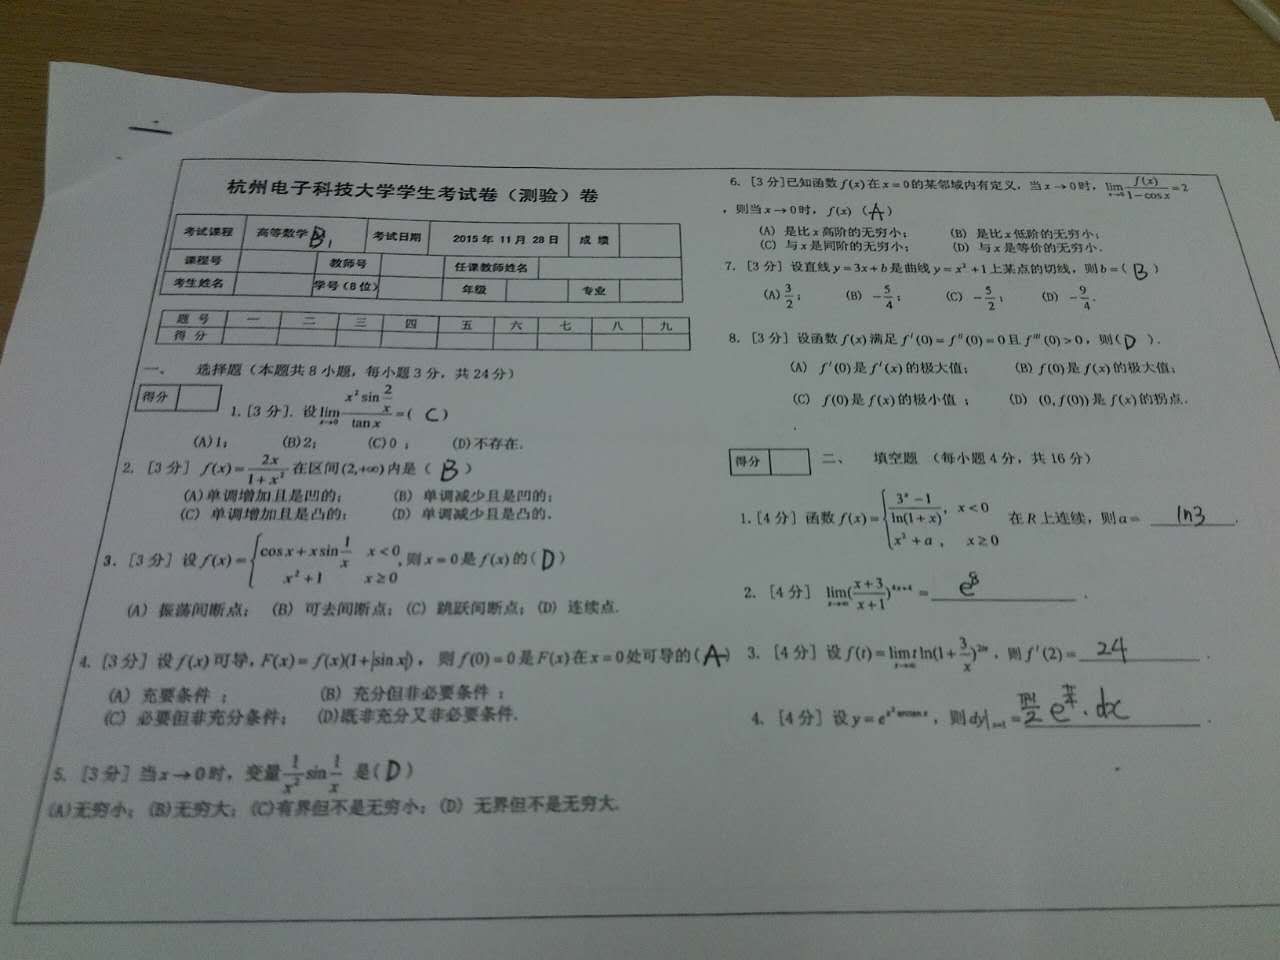 杭州电子科技大学学生考试卷（测验）卷
考试课程 高等数学B1 考试日期 2015 年 11 月 28 日 成 绩
课程号 教师号 任课教师姓名
考生姓名 学号（8位） 年级 专业
题 号 一 二 三 四 五 六 七 八 九
得 分
一、 选择题（本题共 8 小题，每小题 3 分，共 24 分）
得分
1. [3 分]. 设 lim_{x→0} (x² sin(2/x))/(tan x) =( C )
(A) 1; (B) 2; (C) 0 ; (D) 不存在.
2. [3 分] f(x)= 2x/(1+x²) 在区间(2,+∞)内是（ B ）
(A) 单调增加且是凹的; (B) 单调减少且是凹的;
(C) 单调增加且是凸的; (D) 单调减少且是凸的.
3. [3 分] 设 f(x)= { cos x + x sin(1/x) x<0 , x²+1 x≥0 则 x=0 是 f(x) 的( D )
(A) 振荡间断点; (B) 可去间断点; (C) 跳跃间断点; (D) 连续点.
4. [3 分] 设 f(x) 可导, F(x)= f(x)(1+|sin x|) , 则 f(0)=0 是 F(x) 在 x=0 处可导的( A )
(A) 充要条件 ; (B) 充分但非必要条件 ;
(C) 必要但非充分条件; (D)既非充分又非必要条件.
5. [3 分] 当 x→0 时, 变量 1/x² sin 1/x 是( D )
(A)无穷小; (B)无穷大; (C)有界但不是无穷小; (D) 无界但不是无穷大.
6. [3 分]已知函数 f(x) 在 x=0 的某邻域内有定义, 当 x→0 时, lim_{x→0} f(x)/(1-cos x) =2
, 则当 x→0 时, f(x) ( A )
(A) 是比 x 高阶的无穷小; (B) 是比 x 低阶的无穷小;
(C) 与 x 是同阶的无穷小; (D) 与 x 是等价的无穷小.
7. [3 分] 设直线 y=3x+b 是曲线 y=x²+1 上某点的切线, 则 b=( B )
(A) 3/2; (B) -5/4; (C) -5/2; (D) -9/4.
8. [3 分] 设函数 f(x) 满足 f'(0)=f''(0)=0 且 f'''(0)>0, 则( D ).
(A) f'(0) 是 f'(x) 的极大值; (B) f(0) 是 f(x) 的极大值;
(C) f(0) 是 f(x) 的极小值 ; (D) (0,f(0)) 是 f(x) 的拐点.
得分 二、 填空题 （每小题 4 分，共 16 分）
1. [4 分] 函数 f(x)= { (3ˣ-1)/ln(1+x), x<0 x²+a , x≥0 在 R 上连续, 则 a= ln3 .
2. [4 分] lim_{x→∞} ((x+3)/(x+1))^{4x+4} = e⁸ .
3. [4 分] 设 f(t)= lim_{x→∞} t ln(1+3/x)^{2tx} , 则 f'(2)= 24 .
4. [4 分] 设 y=e^{x² arctan x} , 则 dy|_{x=1} = (π+1)/2 e^{π/4} · dx .